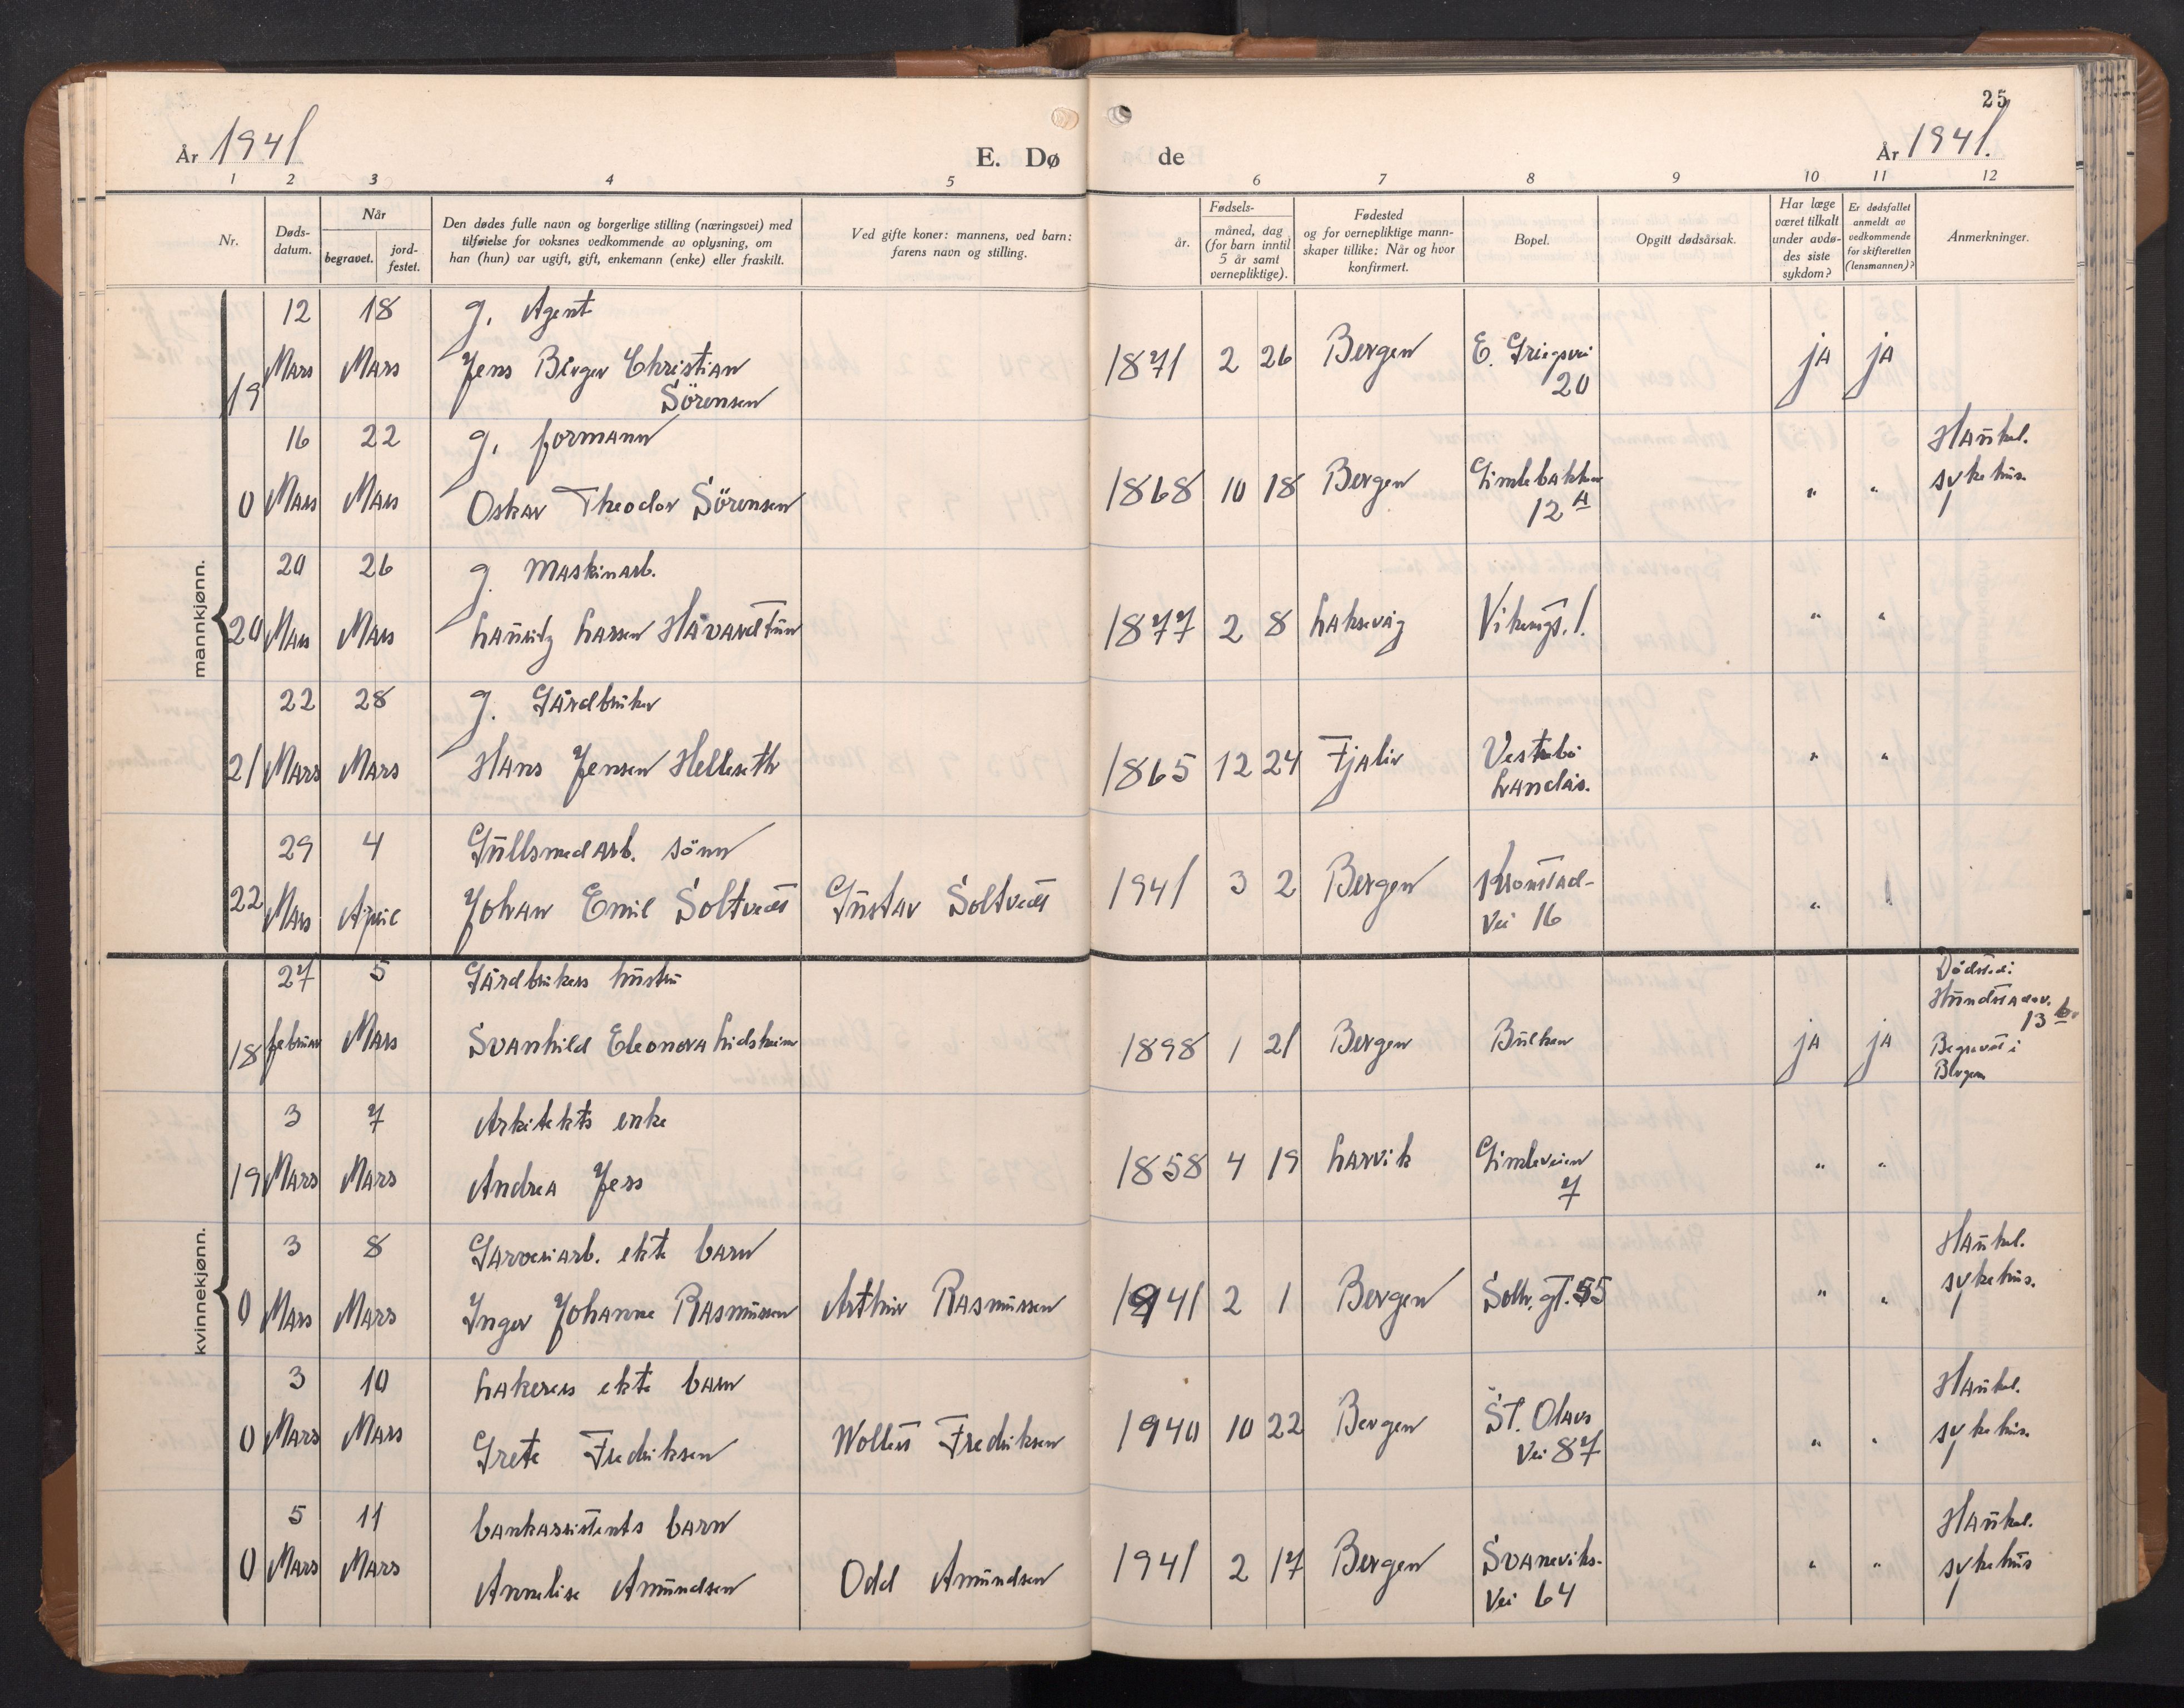 25
År 1941
E. Dø
de
År 1941.
1 2 3 4 5 6 7 8 9 10 11 12
Nr.
Døds-
datum.
Når
begravet.
jord-
festet.
Den dødes fulle navn og borgerlige stilling (næringsvei) med
tilføielse for voksnes vedkommende av oplysning, om
han (hun) var ugift, gift, enkemann (enke) eller fraskilt.
Ved gifte koner: mannens, ved barn:
farens navn og stilling.
år.
Fødsels-
måned, dag
(for barn inntil
5 år samt
vernepliktige).
Fødested
og for vernepliktige mann-
skaper tillike: Når og hvor
konfirmert.
Bopel.
Opgitt dødsårsak.
Har læge
været tilkalt
under avdø-
des siste
sykdom?
Er dødsfallet
anmeldt av
vedkommende
for skifteretten
(lensmannen)?
Anmerkninger.
mannkjønn.
12 18 g. Agent
19 Mars Mars Jens Birger Christian 1871 2 26 Bergen E. Griegsvei ja ja
Sörensen 20
16 22 g. formann Haukel.
0 Mars Mars Oskar Theodor Sörensen 1868 10 18 Bergen Gimlebakken " " sykehus.
12 A
20 26 g. Maskinarb.
20 Mars Mars Lauritz Larsen Håvardtun 1877 2 8 Laksevåg Vikings. 1. " "
22 28 g. Gårdbruker
21 Mars Mars Hans Jensen Helleseth 1865 12 24 Fjaler Vestrebö " "
Landås.
29 4 Gullsmedarb. sönn
22 Mars April Johan Emil Soltvedt Gustav Soltvedt 1941 3 2 Bergen Kronstad- " "
Vei 16
kvinnekjønn.
27 5 Gårdbrukers hustru Dödsted:
Hundstadv.
13 b.
18 februar Mars Svanhild Eleonora Lidsheim 1898 1 21 Bergen Bulken ja ja Begravet i
Bergen
3 7 Arkitekts enke
19 Mars Mars Andrea Jers 1858 4 19 Larvik Gimleveien " "
7
3 8 Garveriarb. ekte barn Haukel.
0 Mars Mars Inger Johanne Rasmussen Arthur Rasmussen 1941 2 1 Bergen Solh. gt. 55 " " sykehus.
3 10 Lakerers ekte barn Haukel.
0 Mars Mars Grete Fredriksen Wollert Fredriksen 1940 10 22 Bergen St. Olavs " " sykehus.
Vei 87
5 11 bankassistents barn Haukel.
0 Mars Mars Annelise Amundsen Odd Amundsen 1941 2 17 Bergen Svaneviks- " " sykehus
Vei 64